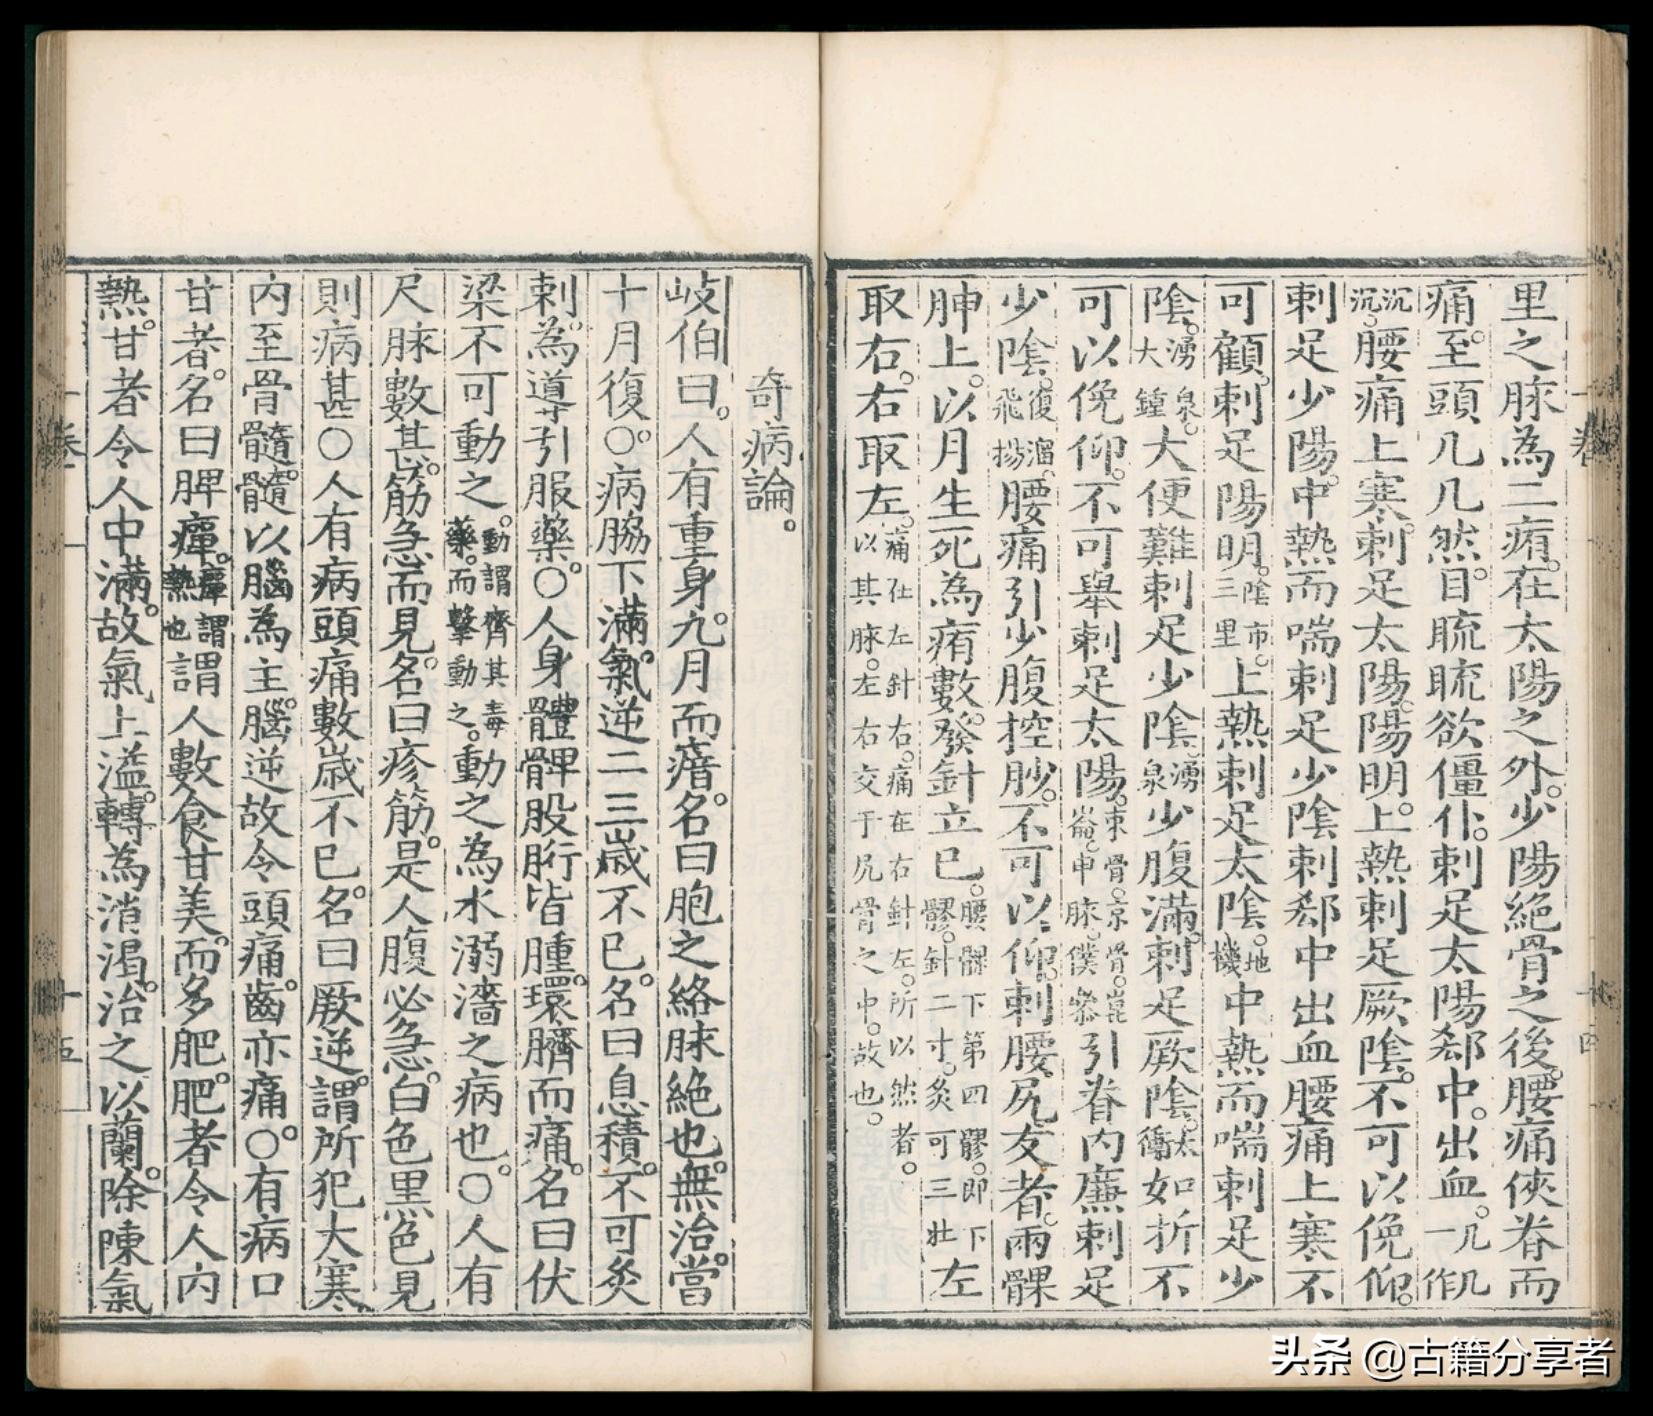 里之脉為二痏在太陽之外少陽絶骨之後腰痛俠脊而
痛至頭几几然目䀮䀮欲僵仆刺足太陽郄中出血几几一作
沉沉腰痛上寒刺足太陽陽明上熱刺足厥陰不可以俛仰
刺足少陽中熱而喘刺足少陰刺郄中出血腰痛上寒不
可顧刺足陽明陰市三里上熱刺足太陰地機中熱而喘刺足少
陰湧泉大鍾大便難刺足少陰湧泉少腹滿刺足厥陰太衝如折不
可以俛仰不可舉刺足太陽束骨京骨崑崙申脉僕參引脊內廉刺足
少陰復溜飛揚腰痛引少腹控䏚不可以仰刺腰尻交者兩髁
胂上以月生死為痏數發針立已腰髁下第四髎即下髎針二寸灸可三壯左
取右右取左痛在左針右痛在右針左所以然者以其脉左右交于尻骨之中故也
奇病論
岐伯曰人有重身九月而瘖名曰胞之絡脉絶也無治當
十月復○病脇下滿氣逆二三歲不已名曰息積不可灸
刺為導引服藥○人身體髀股胻皆腫環臍而痛名曰伏
梁不可動之動謂齊其毒藥而擊動之動之為水溺濇之病也○人有
尺脉數甚筋急而見名曰疹筋是人腹必急白色黑色見
則病甚○人有病頭痛數歲不已名曰厥逆謂所犯大寒
內至骨髓髓以腦為主腦逆故令頭痛齒亦痛○有病口
甘者名曰脾癉癉謂熱也謂人數食甘美而多肥肥者令人內
熱甘者令人中滿故氣上溢轉為消渴治之以蘭除陳氣
卷
十四
卷
十五
头条 @古籍分享者